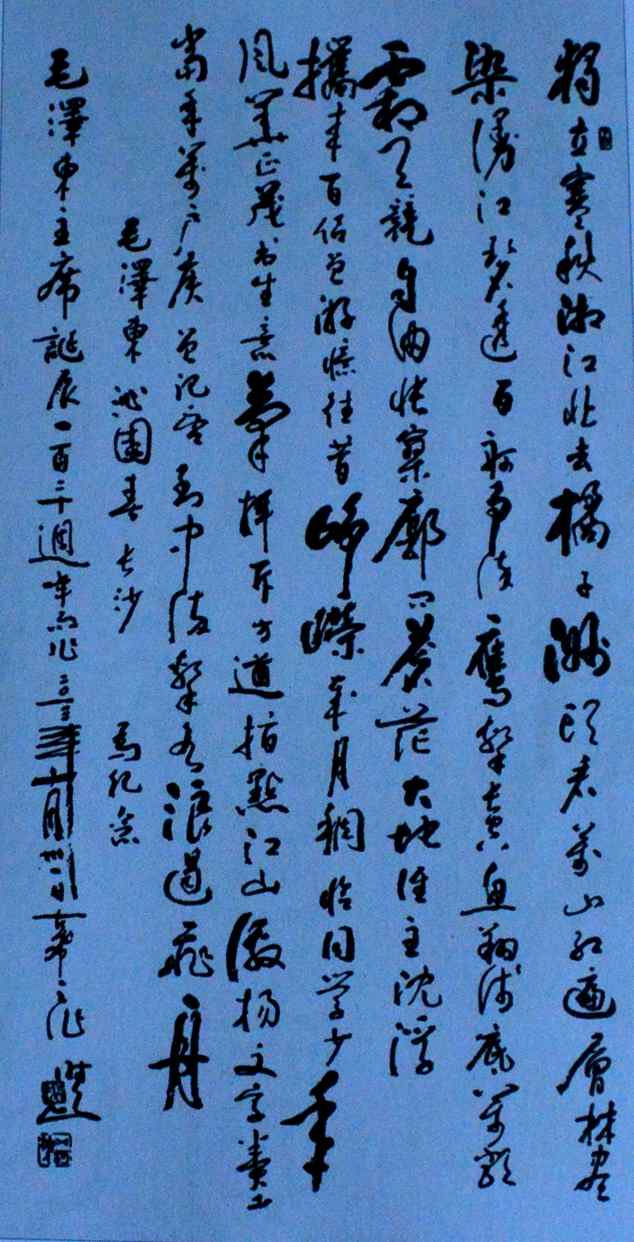 獨立寒秋湘江北去橘子洲頭看萬山紅遍層林盡
染漫江碧透百舸爭流鷹擊長空魚翔淺底萬類
霜天競自由悵寥廓問蒼茫大地誰主沈浮
攜來百侶曾游憶往昔崢嶸歲月稠恰同学少年
風華正茂书生意氣揮斥方遒指點江山激揚文字糞土
當年萬户侯曾記否到中流擊水浪遏飛舟
毛澤東沁園春長沙 為紀念
毛澤東主席誕辰一百二十週年而作二〇一三年十月